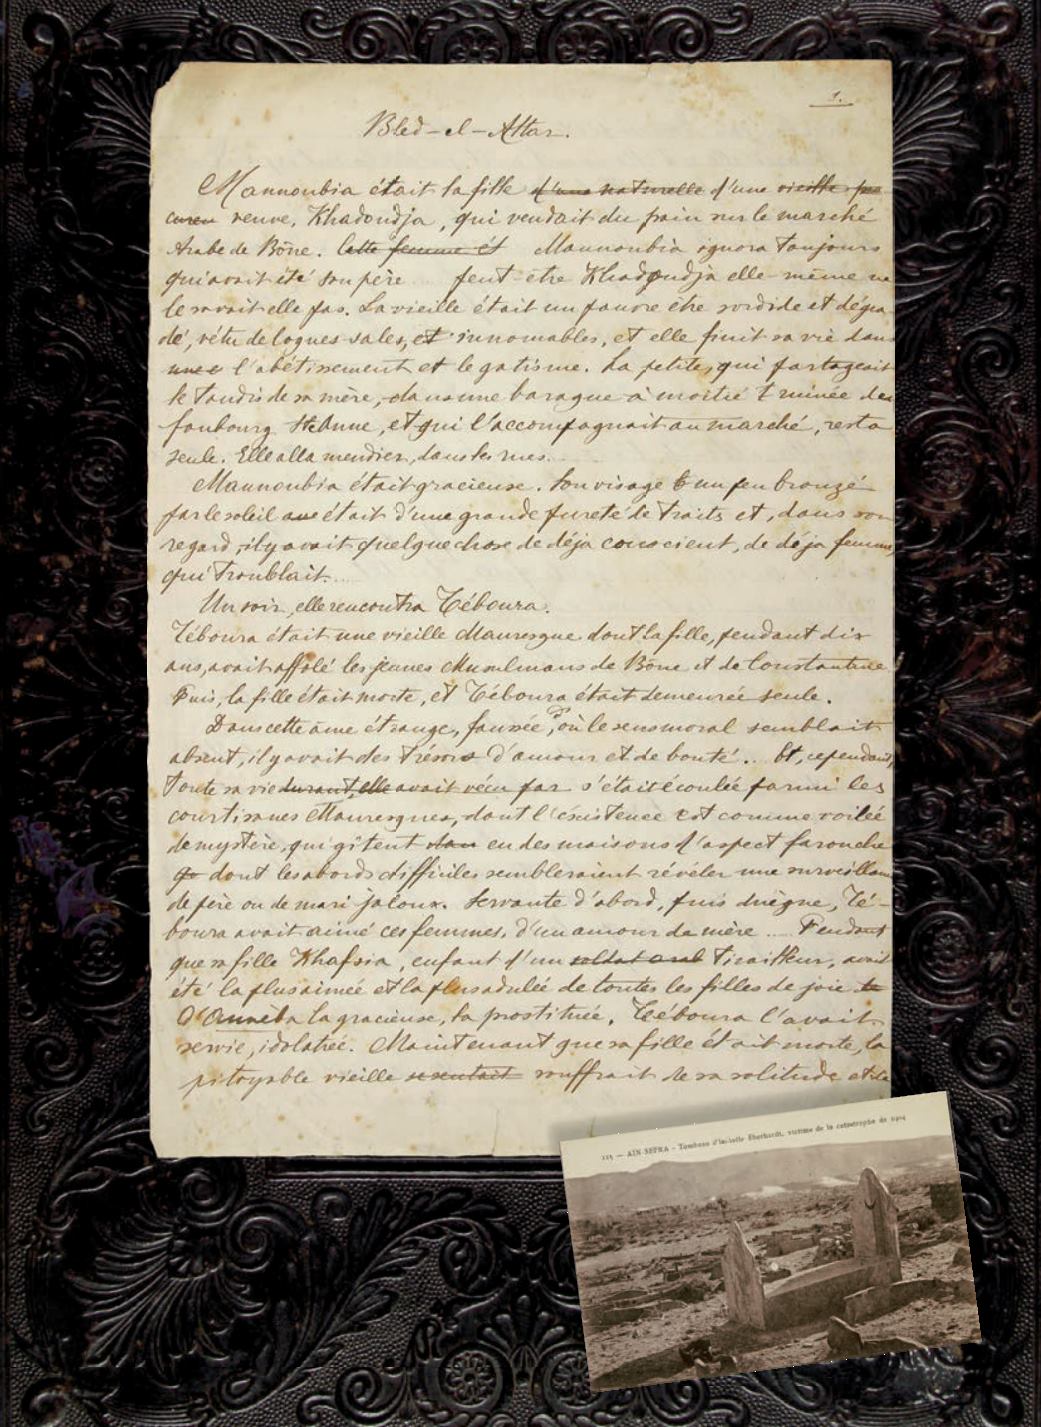 1.
Bled-el-Attar.
Mannoubia était la fille d'une naturelle d'une vieille
veuve, Khadoudja, qui vendait du pain sur le marché
Arabe de Bône. Cette femme ét Mannoubia ignora toujours
qui avait été son père... Peut-être Khadoudja elle-même ne
le savait elle pas. La vieille était un pauvre être sordide et dégra
dé, vêtu de loques sales, et innomables, et elle finit sa vie dans
une l'abêtissement et le gatisme. La petite, qui partageait
le taudis de sa mère, dans une baraque à moitié ruinée du
faubourg Ste Anne, et qui l'accompagnait au marché, resta
seule. Elle alla mendier, dans les rues...
Mannoubia était gracieuse. Son visage un peu bronzé
par le soleil était d'une grande pureté de traits et, dans son
regard, il y avait quelque chose de déja conscient, de déja femme,
qui troublait...
Un soir, elle rencontra Téboura.
Téboura était une vieille Mauresque dont la fille, pendant dix
ans, avait affolé les jeunes Musulmans de Bône et de Constantine
Puis, la fille était morte, et Téboura était demeurée seule.
Dans cette âme étrange, faussée, où le sens moral semblait
absent, il y avait des trésors d'amour et de bonté... Et, cependant,
toute sa vie durant, elle avait vécu par s'était écoulée parmi les
courtisanes Mauresques, dont l'existence est comme voilée
de mystère, qui gîtent dan en des maisons d'aspect farouche
dont les abords difficiles sembleraient révéler une surveillance
de père ou de mari jaloux. Servante d'abord, puis duègne, Té-
boura avait aimé ces femmes, d'un amour de mère... Pendant
que sa fille Khafsia, enfant d'un soldat arab tirailleur, avait
été la plus aimée et la plus adulée de toutes les filles de joie
d'Anneba la gracieuse, la prostituée, Téboura l'avait
servie, idolatrée. Maintenant que sa fille était morte, la
pitoyable vieille se sentait souffrait de sa solitude et de
115 — AÏN-SEFRA - Tombeau d'Isabelle Eberhardt, victime de la catastrophe de 1904